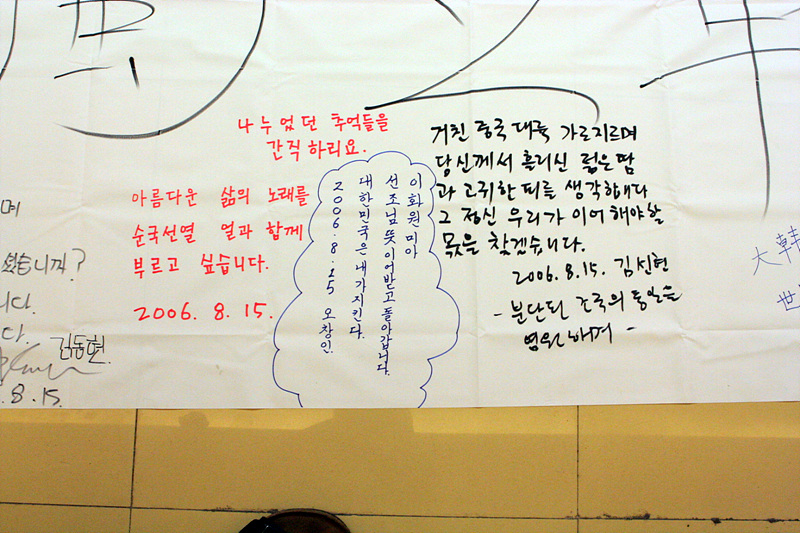 나누었던 추억들을
간직하리요.
아름다운 삶의 노래를
순국선열 얼과 함께
부르고 싶습니다.
2006. 8. 15.
이화원 미아
선조님 뜻 이어받고 돌아갑니다.
대한민국은 내가 지킨다.
2006. 8. 15 오창인.
거친 중국 대륙 가로지르며
당신께서 흘리신 굵은 땀
과 고귀한 피를 생각합니다
그 정신 우리가 이어 해야 할
몫을 찾겠습니다.
2006. 8. 15. 김신현
- 분단된 조국의 통일을
염원하며 -
며
셨습니까?
니다.
다.
김동현.
. 8. 15.
大韩
世